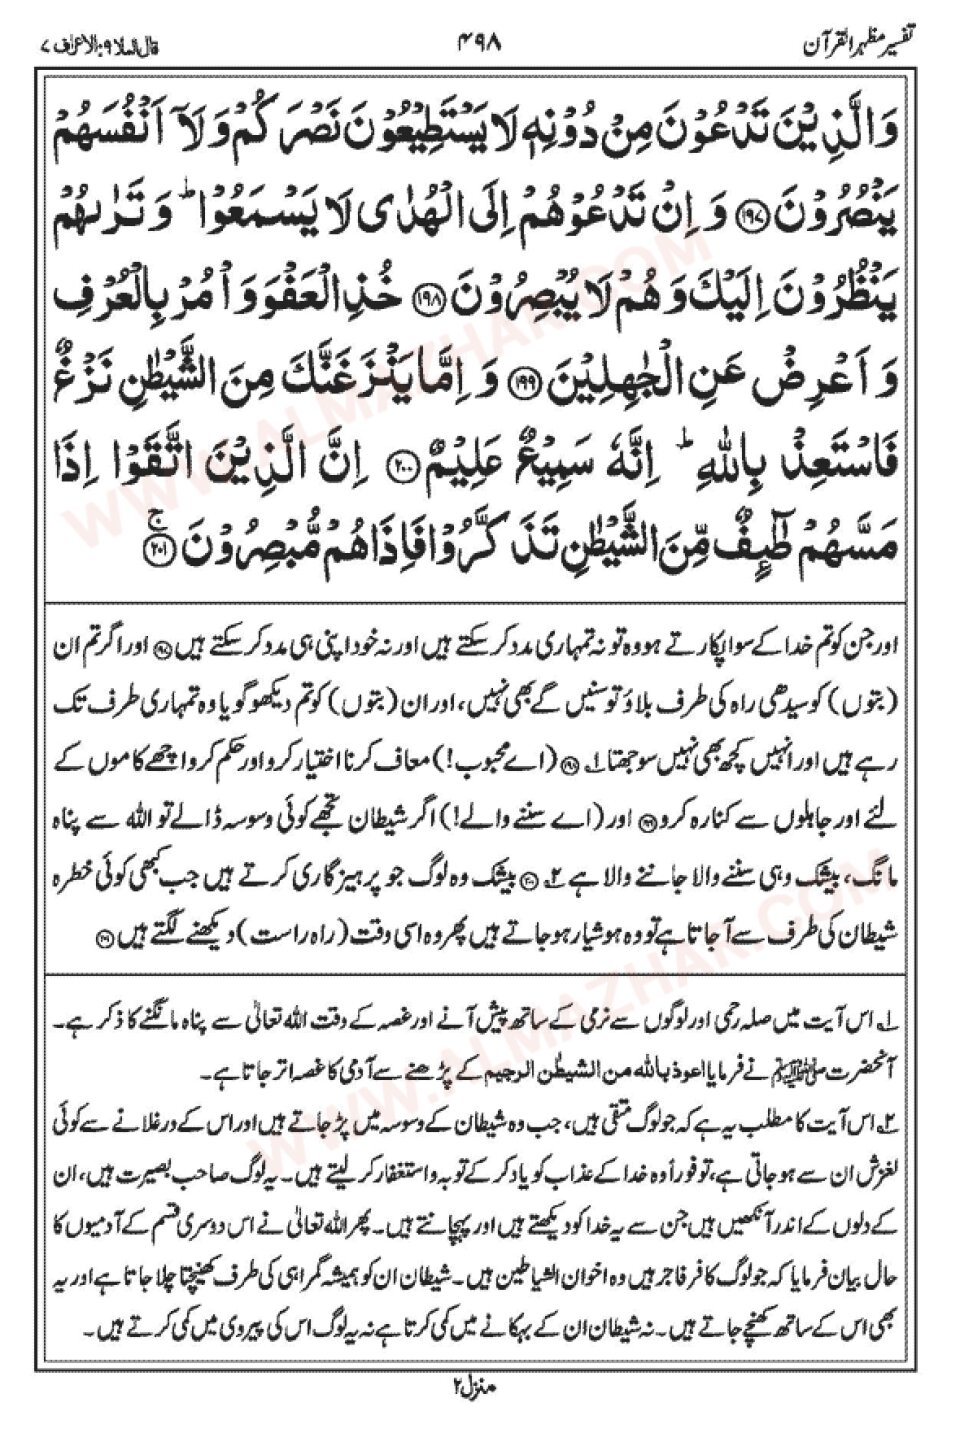 تفسیر مظہر القرآن
۴۹۸
قال الملا ۹: الاعراف ۷
وَالَّذِيْنَ تَدْعُوْنَ مِنْ دُوْنِهٖ لَا يَسْتَطِيْعُوْنَ نَصْرَكُمْ وَلَآ اَنْفُسَهُمْ
يَنْصُرُوْنَ ﴿۱۹۷﴾ وَاِنْ تَدْعُوْهُمْ اِلَى الْهُدٰى لَا يَسْمَعُوْا ؕ وَتَرٰىهُمْ
يَنْظُرُوْنَ اِلَيْكَ وَهُمْ لَا يُبْصِرُوْنَ ﴿۱۹۸﴾ خُذِ الْعَفْوَ وَاْمُرْ بِالْعُرْفِ
وَاَعْرِضْ عَنِ الْجٰهِلِيْنَ ﴿۱۹۹﴾ وَاِمَّا يَنْزَغَنَّكَ مِنَ الشَّيْطٰنِ نَزْغٌ
فَاسْتَعِذْ بِاللّٰهِ ؕ اِنَّهٗ سَمِيْعٌ عَلِيْمٌ ﴿۲۰۰﴾ اِنَّ الَّذِيْنَ اتَّقَوْا اِذَا
مَسَّهُمْ طٰٓئِفٌ مِّنَ الشَّيْطٰنِ تَذَكَّرُوْا فَاِذَا هُمْ مُّبْصِرُوْنَ ﴿۲۰۱﴾ ج
اور جن کو تم خدا کے سوا پکارتے ہو وہ تو نہ تمہاری مدد کر سکتے ہیں اور نہ خود اپنی ہی مدد کر سکتے ہیں ﴿۱۹۷﴾ اور اگر تم ان
(بتوں) کو سیدھی راہ کی طرف بلاؤ تو سنیں گے بھی نہیں، اور ان (بتوں) کو تم دیکھو گویا وہ تمہاری طرف تک
رہے ہیں اور انہیں کچھ بھی نہیں سوجھتا ﴿۱۹۸﴾ (اے محبوب!) معاف کرنا اختیار کرو اور حکم کرو اچھے کاموں کے
لئے اور جاہلوں سے کنارہ کرو ﴿۱۹۹﴾ اور (اے سننے والے!) اگر شیطان تجھے کوئی وسوسہ ڈالے تو اللہ سے پناہ
مانگ، بیشک وہی سننے والا جاننے والا ہے ۲ ﴿۲۰۰﴾ بیشک وہ لوگ جو پرہیزگاری کرتے ہیں جب کبھی کوئی خطرہ
شیطان کی طرف سے آ جاتا ہے تو وہ ہوشیار ہو جاتے ہیں پھر وہ اسی وقت (راہ راست) دیکھنے لگتے ہیں ﴿۲۰۱﴾
۱ اس آیت میں صلہ رحمی اور لوگوں سے نرمی کے ساتھ پیش آنے اور غصہ کے وقت اللہ تعالیٰ سے پناہ مانگنے کا ذکر ہے۔
آنحضرت ﷺ نے فرمایا اعوذ باللہ من الشیطٰن الرجیم کے پڑھنے سے آدمی کا غصہ اتر جاتا ہے۔
۲ اس آیت کا مطلب یہ ہے کہ جو لوگ متقی ہیں، جب وہ شیطان کے وسوسہ میں پڑ جاتے ہیں اور اس کے ورغلانے سے کوئی
لغزش ان سے ہو جاتی ہے، تو فوراً وہ خدا کے عذاب کو یاد کر کے توبہ و استغفار کر لیتے ہیں۔ یہ لوگ صاحب بصیرت ہیں، ان
کے دلوں کے اندر آنکھیں ہیں جن سے یہ خدا کو دیکھتے ہیں اور پہچانتے ہیں۔ پھر اللہ تعالیٰ نے اس دوسری قسم کے آدمیوں کا
حال بیان فرمایا کہ جو لوگ کافر فاجر ہیں وہ اخوان الشیاطین ہیں۔ شیطان ان کو ہمیشہ گمراہی کی طرف کھینچتا چلا جاتا ہے اور یہ
بھی اس کے ساتھ کھنچے جاتے ہیں۔ نہ شیطان ان کے بہکانے میں کمی کرتا ہے نہ یہ لوگ اس کی پیروی میں کمی کرتے ہیں۔
منزل ۲
WWW.ALMAZHAR.COM
WWW.ALMAZHAR.COM